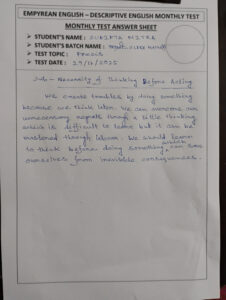 EMPYREAN ENGLISH – DESCRIPTIVE ENGLISH MONTHLY TEST
MONTHLY TEST ANSWER SHEET
➢ STUDENT'S NAME : SUKIPTA MITRA
➢ STUDENT'S BATCH NAME :
➢ TEST TOPIC : PRECIS
➢ TEST DATE : 27/12/2025
Sub:- Necessity of Thinking Before Acting
We create troubles by doing something
because we think later. We can overcome our
unnecessary regrets through a little thinking
which is difficult to leave but it also be
mastered through labour. We should learn
to think before doing something, which can save
ourselves from inevitable consequences.